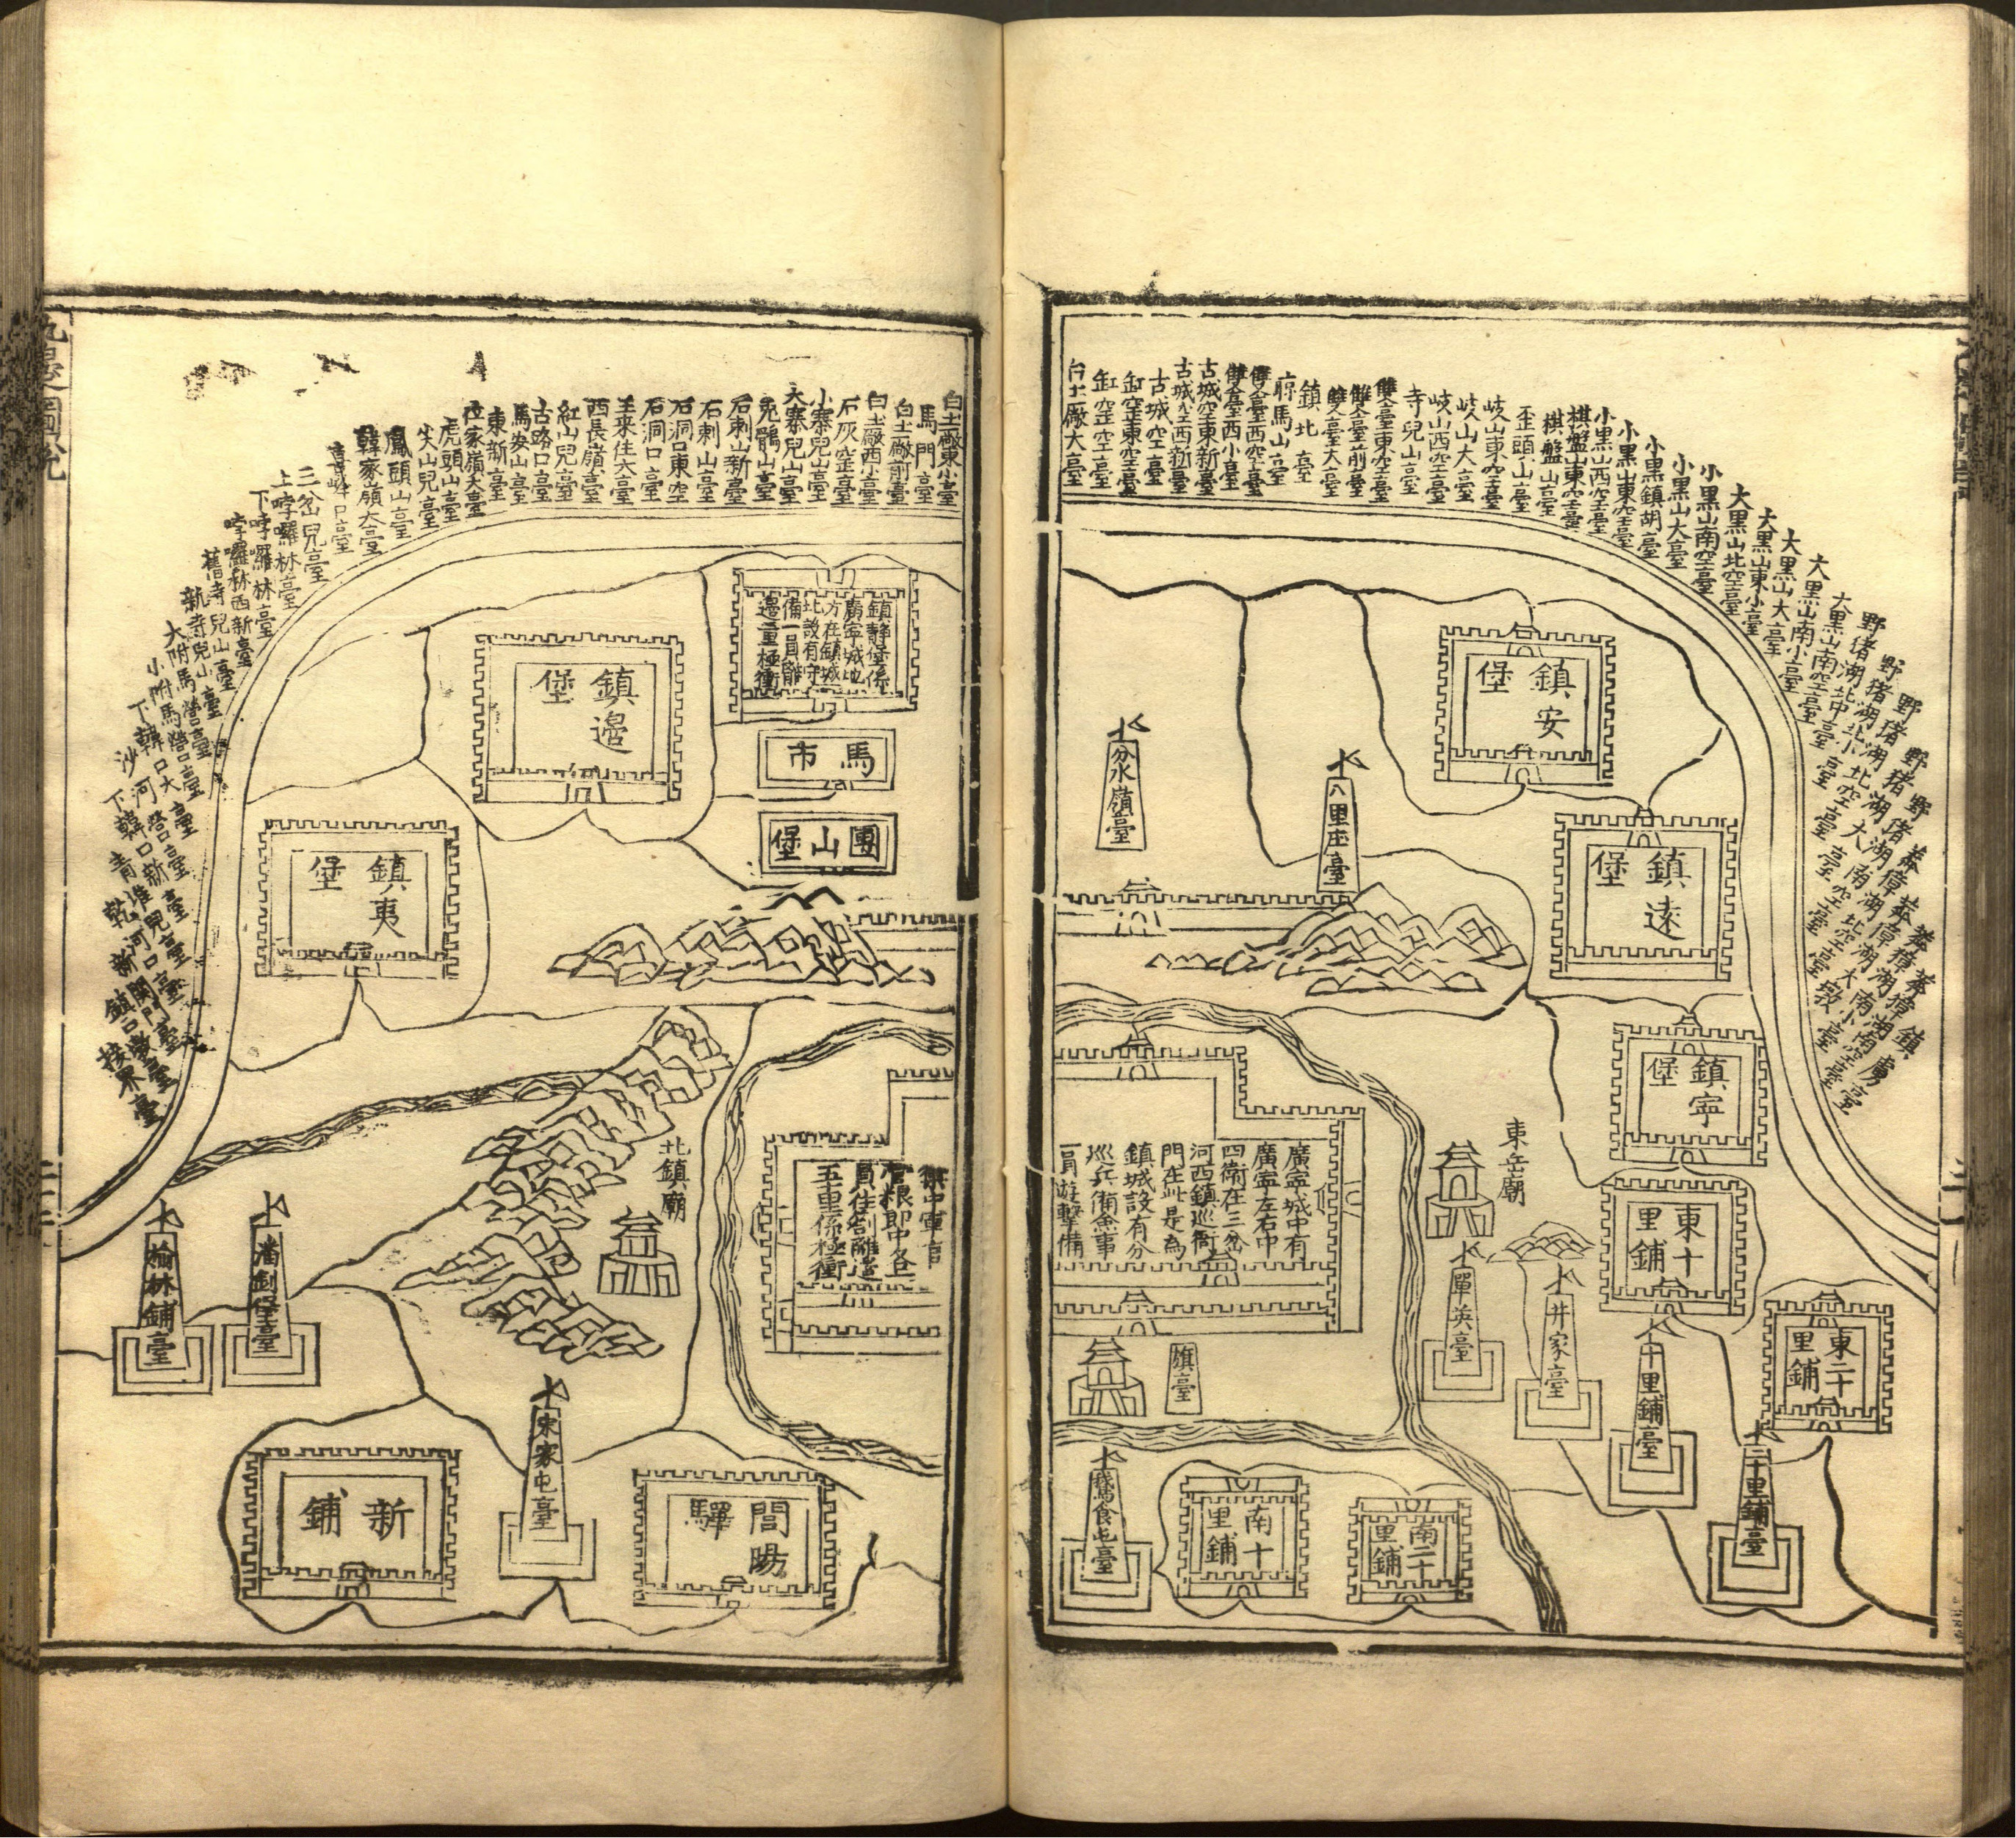 鎮虜臺
野猪湖北中臺
大黑山南空臺
大黑山南小臺
大黑山大臺
大黑山東小臺
大黑山北空臺
小黑山南空臺
小黑山大臺
小黑鎮胡臺
小黑山東空臺
小黑山西空臺
棋盤山東空臺
棋盤山臺
歪頭山臺
岐山東空臺
岐山大臺
岐山西空臺
寺兒山臺
雙臺東空臺
雙臺前臺
雙臺大臺
鎮北臺
晾馬山臺
雙臺西空臺
雙臺西小臺
古城空東新臺
古城空西新臺
古城空臺
缸窑東空臺
缸窑空臺
白土廠大臺
鎮安堡
鎮遠堡
鎮寧堡
東十里鋪
東二十里鋪
東岳廟
八里庄臺
分水嶺臺
單英臺
井家臺
十里鋪臺
二十里鋪臺
廣寧城中有
廣寧左右中
四衛在三岔
河西鎮巡衙
門在此是為
鎮城設有分
巡兵備僉事
一員遊擊備
旗臺
南二十里鋪
南十里鋪
鵝食屯臺
白土廠東小臺
馬門臺
白土廠前臺
白土廠西小臺
石灰窑臺
小寨兒山臺
大寨兒山臺
兔鶻山臺
石刺山新臺
石刺山臺
石洞口東空
石洞口臺
王來住大臺
西長嶺臺
紅山兒臺
古路口臺
馬安山臺
東新臺
位家嶺大臺
虎頭山臺
尖山兒臺
鳳頭山臺
韓家嶺大臺
喜峰口臺
三岔兒臺
上哱囉林臺
下哱囉林臺
哱囉林西新臺
舊寺兒山臺
新寺兒山臺
大附馬營臺
小附馬營臺
下韓口大臺
沙河營臺
下韓口新臺
青堆兒臺
乾河口臺
新關門臺
鎮口墩臺
接界臺
鎮靜堡係
廣寧城地
方在鎮城
北設有守
備一員離
邊二里極衝
馬市
團山堡
鎮邊堡
鎮夷堡
禦中軍官
管粮郎中各
員住劄離邊
五里係極衝
北鎮廟
潘劍堡臺
榆林鋪臺
宋家屯臺
閭陽驛
新鋪
九邊圖說